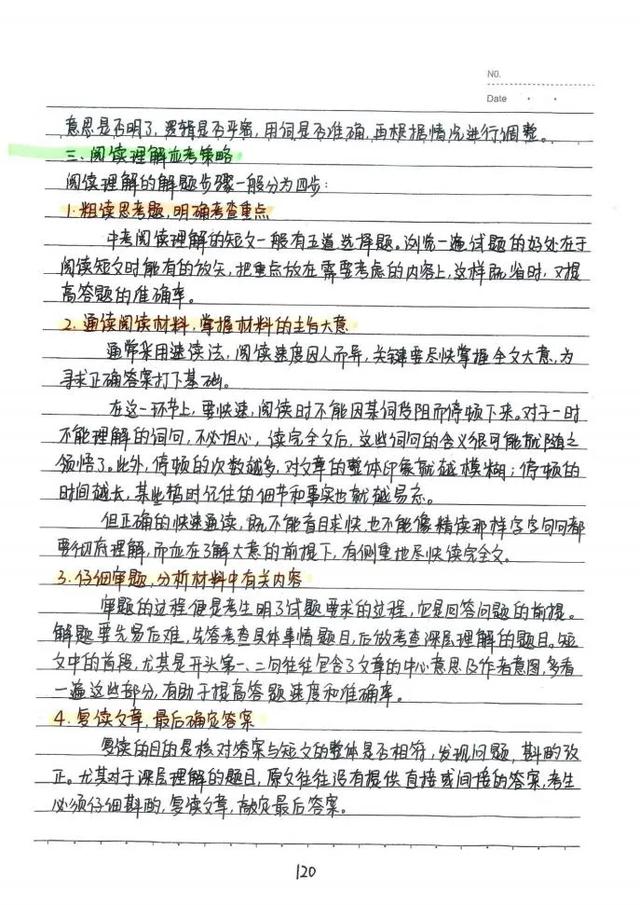 NO.
Date
意思是否明了，逻辑是否严密，用词是否准确，再根据情况进行调整。
三、阅读理解应考策略
阅读理解的解题步骤一般分为四步：
1.粗读思考题，明确考查重点
中考阅读理解的短文一般有五道选择题。浏览一遍试题的好处在于
阅读短文时能有的放矢，把重点放在需要考虑的内容上，这样既省时，又提
高答题的准确率。
2.通读阅读材料，掌握材料的主旨大意
通常采用速读法，阅读速度因人而异，关键要尽快掌握全文大意，为
寻求正确答案打下基础。
在这一环节上，要快速，阅读时不能因某词受阻而停顿下来。对于一时
不能理解的词句，不必担心，读完全文后，这些词句的含义很可能就随之
领悟了。此外，停顿的次数越多，对文章的整体印象就越模糊；停顿的
时间越长，某些暂时记住的细节和事实也就越易忘。
但正确的快速通读，既不能盲目求快，也不能像精读那样字字句句都
要彻底理解，而应在了解大意的前提下，有侧重地尽快读完全文。
3.仔细审题，分析材料中有关内容
审题的过程便是考生明了试题要求的过程，它是回答问题的前提。
解题要先易后难，先答考查具体事情题目，后做考查深层理解的题目。短
文中的首段，尤其是开头第一、二句往往包含了文章的中心意思及作者意图，多看
一遍这些部分，有助于提高答题速度和准确率。
4.复读文章，最后确定答案
复读的目的是核对答案与短文的整体是否相符，发现问题，斟酌改
正。尤其对于深层理解的题目，原文往往没有提供直接或间接的答案，考生
必须仔细斟酌，复读文章，敲定最后答案。
120